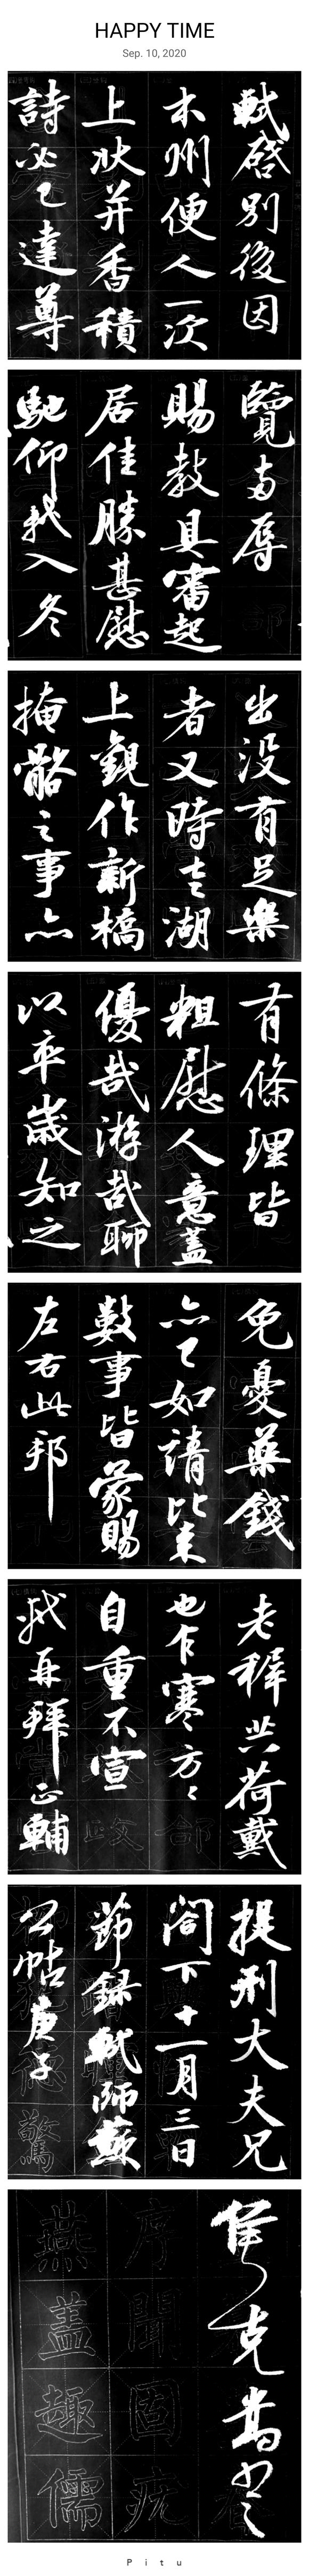 HAPPY TIME
Sep. 10, 2020
軾啓別後因
本州便人一次
上狀并香積
詩必已達尊
覽両辱
賜教具審起
居佳勝甚慰
馳仰軾入冬
出没有足樂
者又時走湖
上觀作新橋
掩骼之事亦
有條理皆
粗慰人意蓋
優哉游哉聊
以卒歲知之
免憂藥錢
亦已如請比來
數事皆蒙賜
左右此邦
老稺共荷戴
也乍寒万〻
自重不宣
軾再拜正輔
提刑大夫兄
閣下十一月三日
節録
帖庚子
侯克
序聞固疣
燕蓋趣儒
Pitu